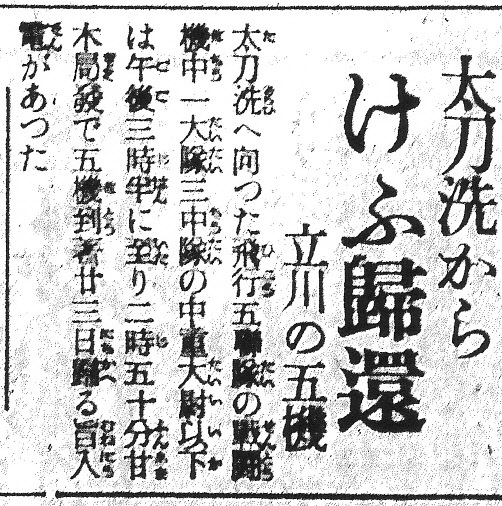 太刀洗から
けふ歸還
立川の五機
太刀洗へ向つた飛行五聯隊の戰鬪
機中一大隊三中隊の中重大尉以下
は午後三時半に至り二時五十分甘
木局發で五機到著廿三日歸る旨入
電があつた